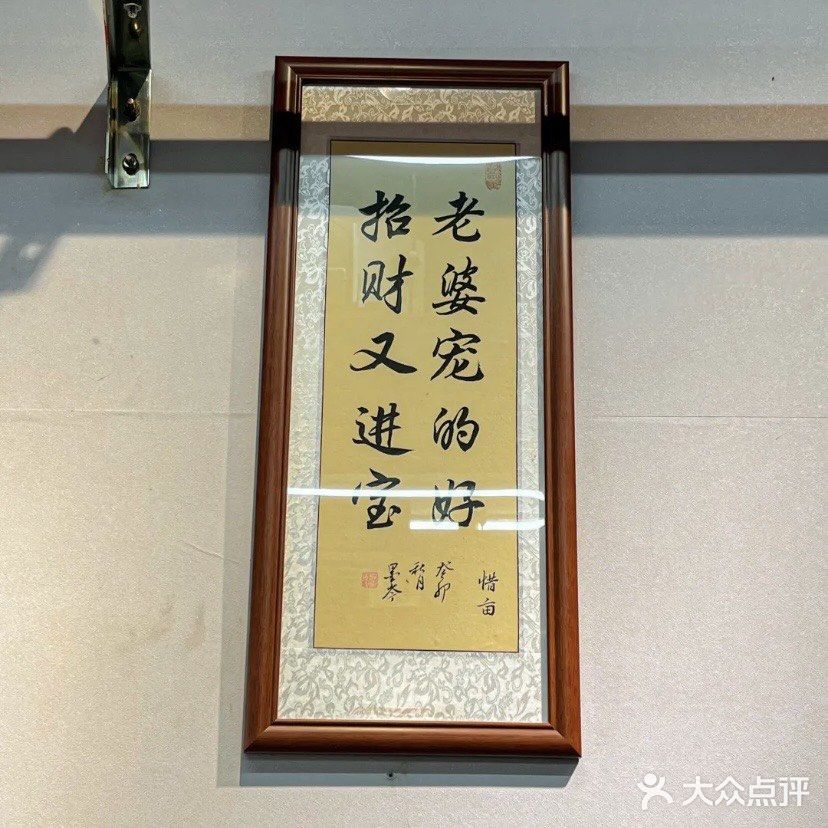 老婆宠的好
招财又进宝
惜亩
癸卯
秋月
墨岑
大众点评